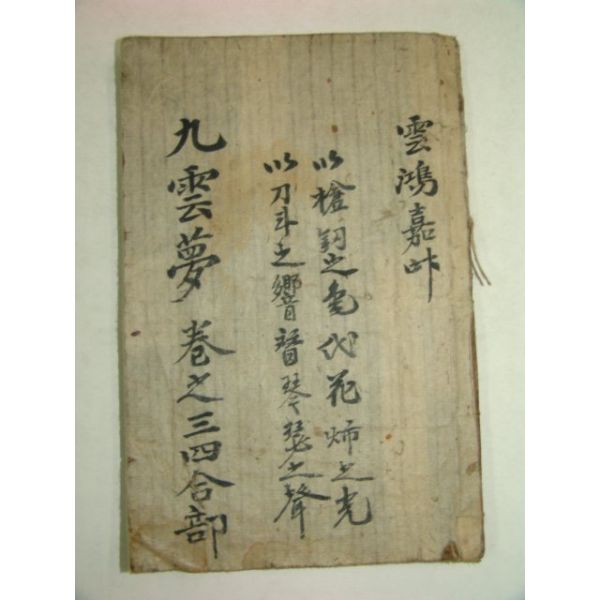 雲鴻嘉
以槍釰之色代花燭之光
以刀斗之響替琴瑟之聲
九雲夢 卷之三四合部